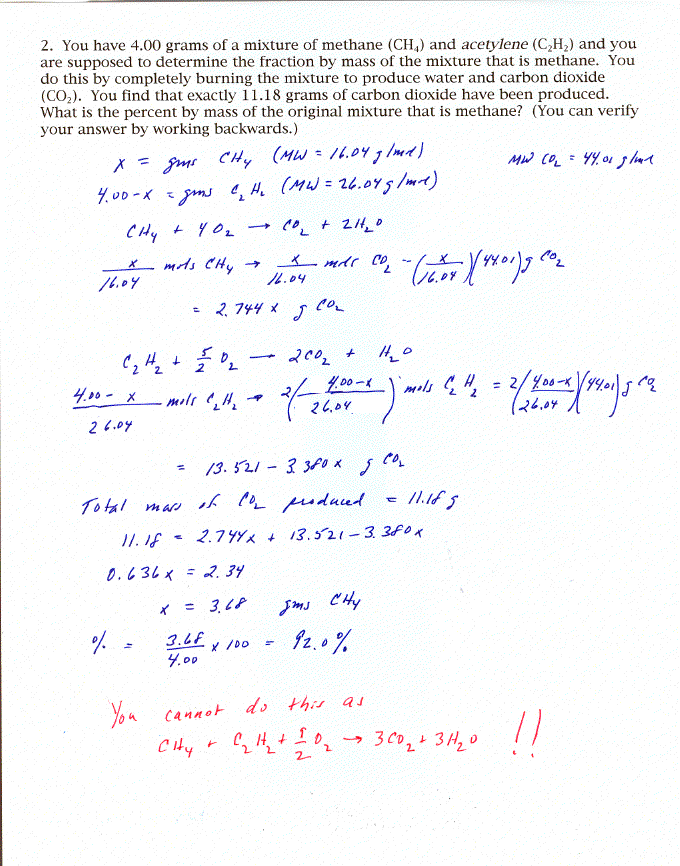 2. You have 4.00 grams of a mixture of methane (CH₄) and acetylene (C₂H₂) and you
are supposed to determine the fraction by mass of the mixture that is methane. You
do this by completely burning the mixture to produce water and carbon dioxide
(CO₂). You find that exactly 11.18 grams of carbon dioxide have been produced.
What is the percent by mass of the original mixture that is methane? (You can verify
your answer by working backwards.)
x = gms CH₄ (MW = 16.04 g/mol) MW CO₂ = 44.01 g/mol
4.00-x = gms C₂H₂ (MW = 26.04 g/mol)
CH₄ + 4O₂ → CO₂ + 2H₂O
x/16.04 mols CH₄ → x/16.04 mols CO₂ - (x/16.04)(44.01) g CO₂
= 2.744 x g CO₂
C₂H₂ + 5/2 O₂ — 2CO₂ + H₂O
4.00 - x/26.04 mols C₂H₂ → 2(4.00-x/26.04) mols C₂H₂ = 2(4.00-x/26.04)(44.01) g CO₂
= 13.521 - 3.380 x g CO₂
Total mass of CO₂ produced = 11.18 g
11.18 = 2.744x + 13.521 - 3.380x
0.636x = 2.34
x = 3.68 gms CH₄
% = 3.68/4.00 x 100 = 92.0%
You cannot do this as
CH₄ + C₂H₂ + 9/2 O₂ → 3CO₂ + 3H₂O !!